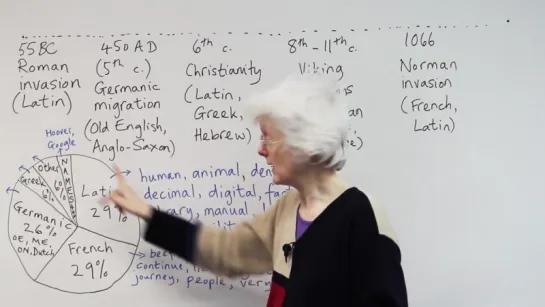 55BC
Roman
invasion
(Latin)
450 AD
(5th c.)
Germanic
migration
(Old English,
Anglo-Saxon)
6th c.
Christianity
(Latin,
Greek,
Hebrew)
8th-11th c.
Viking
1066
Norman
invasion
(French,
Latin)
Hoover,
Google
NAMES
Other
Greek
6%
Latin
29%
Germanic
26%
OE, ME,
ON, Dutch
French
29%
human, animal,
decimal, digital,
manual,
continue,
journey, people,